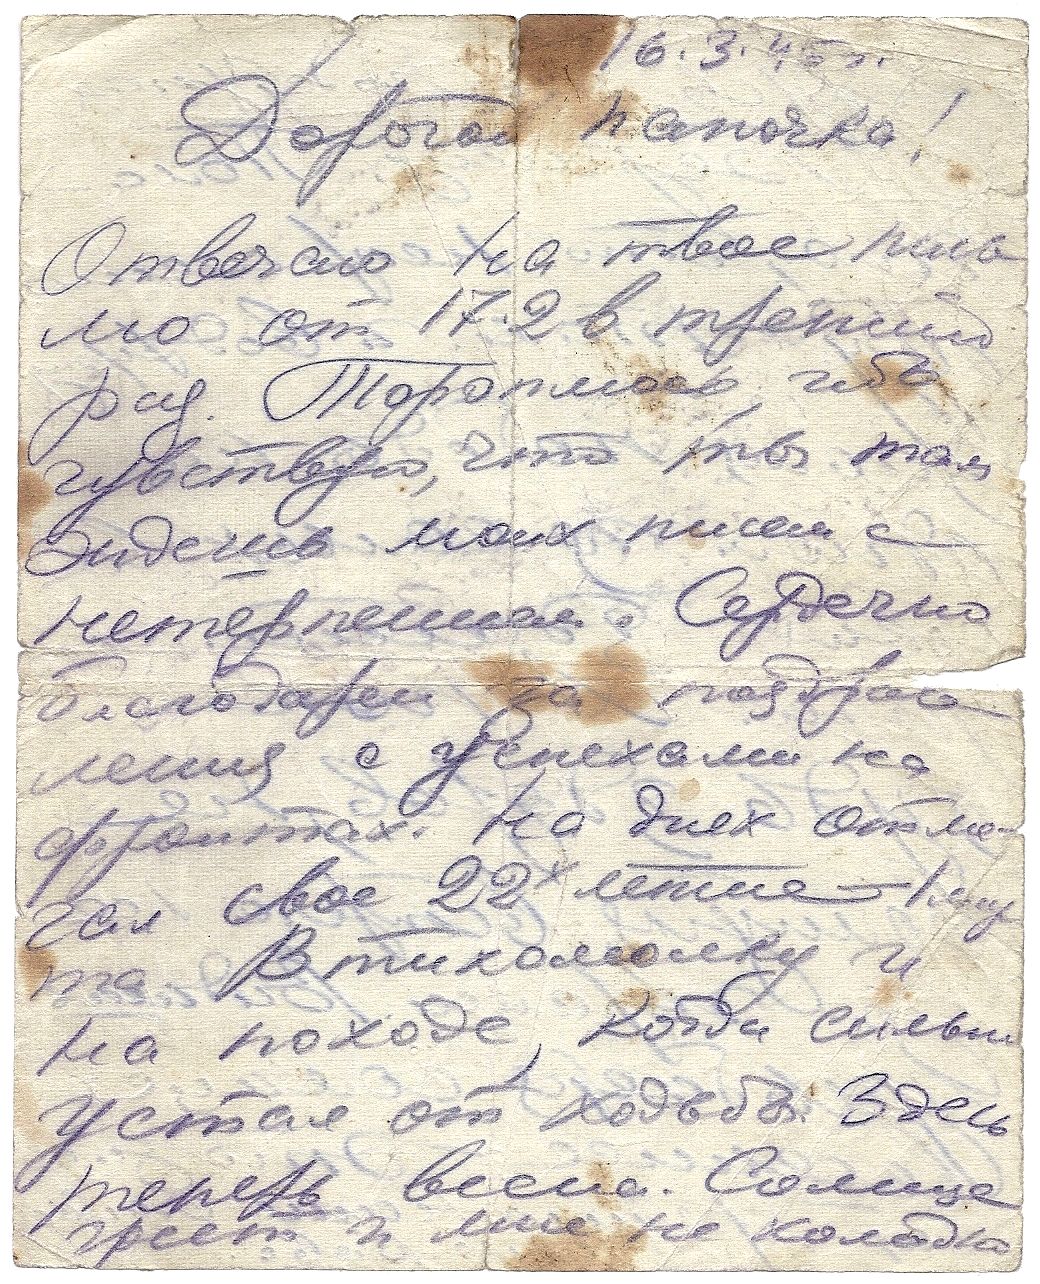 16.3.45 г.
Дорогой папочка!
Отвечаю на твое пись
мо от 17.2 в третий
раз. Тороплюсь, ибо
чувствую, что ты там
ждешь моих писем с
нетерпением. Сердечно
благодарен за поздрав
ления с успехами на
фронтах. На днях отме-
чал свое 22х летие —
та. Втихомолку и
на походе, когда сильно
устал от ходьбы. Здесь
теперь весна. Солнце
греет и мне не холодно